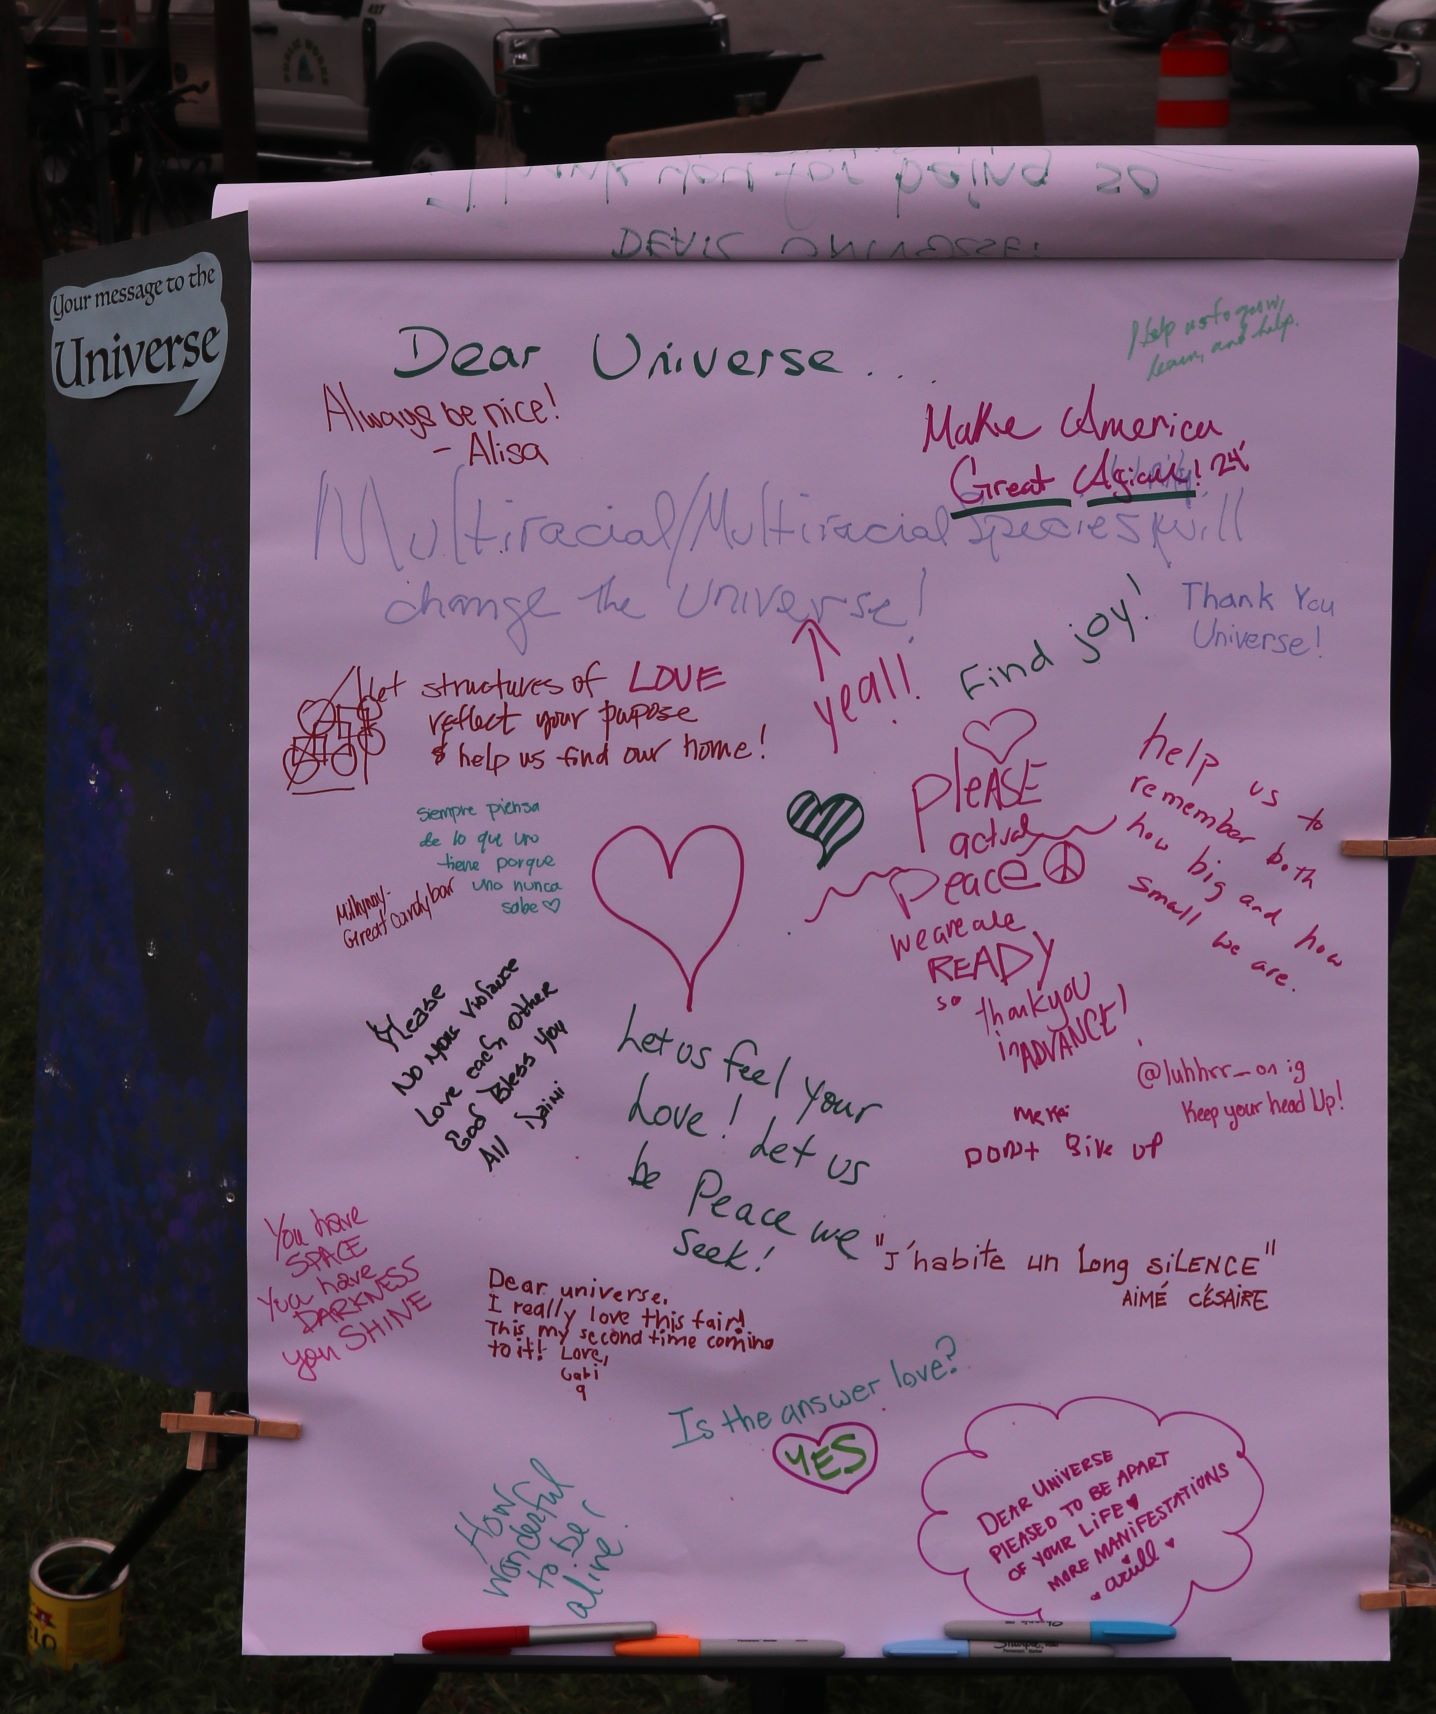 PUBLIC WORKS
Thank you for being so
Your message to the
Universe
Dear Universe....
Help us to grow,
learn, and help.
Always be nice!
- Alisa
Make America
Great Again! 24'
Multiracial/Multiracial species will
change the Universe!
yeah!
Find joy!
Thank You
Universe!
Let structures of LOVE
reflect your pupose
& help us find our home!
Siempre piensa
de lo que uno
tiene porque
uno nunca
sabe
Milkyway-
Great candy bar
PleASE
actual
peace
we are
READY
so thank you
in ADVANCE!
help us to
remember both
how big and how
small we are.
Please
No more Violance
Love each other
God Bless you
All
Let us feel your
Love! Let us
be Peace we
Seek!
@luhhrr_on ig
Keep your head Up!
DON+ Give up
You have
SPACE
You have
DARKNESS
you SHINE
"J'habite un long siLENCE"
AIMÉ CÉSAIRE
Dear universe,
I really love this fair!
This my second time coming
to it! Love,
Gabi
9
Is the answer love?
YES
How
wonderful
to be
alive!
DEAR UNiVERSE
PlEASED TO BE APART
OF YOUR LiFE
MORE MANiFESTATIONS
Sharpie